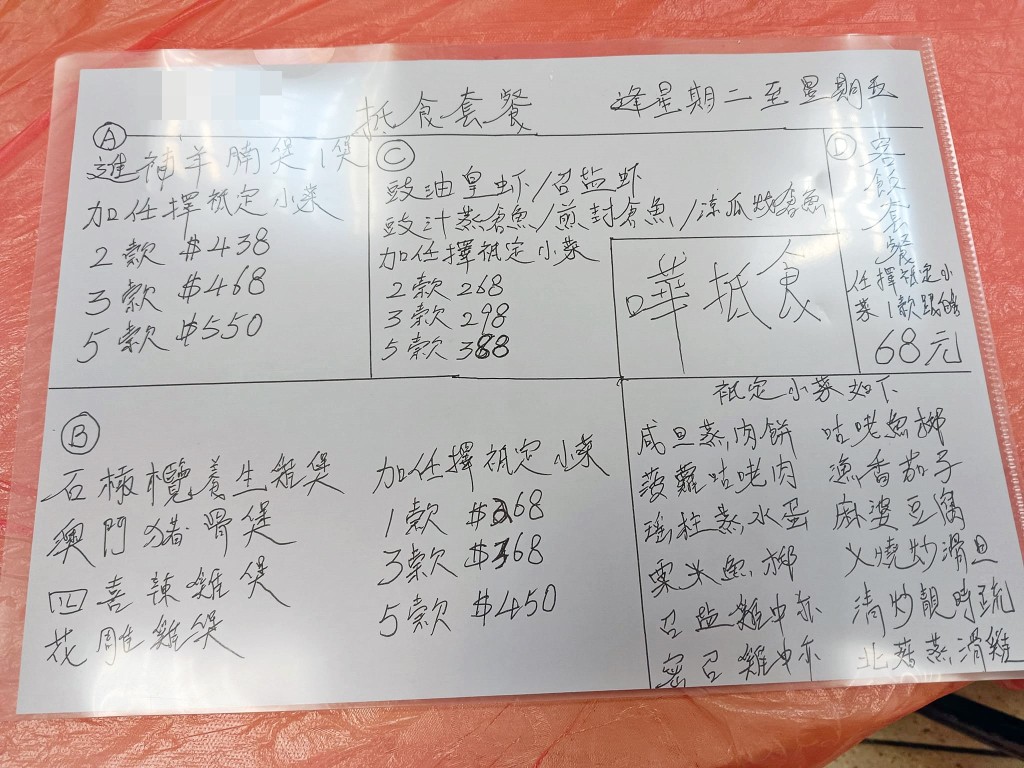 抵食套餐
逢星期二至星期五
A
進補羊腩煲1煲
加任擇祗定小菜
2款 $438
3款 $468
5款 $550
C
豉油皇虾/召盐虾
豉汁蒸倉魚/煎封倉魚/凉瓜炆倉魚
加任擇祗定小菜
2款 268
3款 298
5款 388
嘩抵食
D
客飯套餐
任擇祗定小
菜1款跟例
68元
B
石橄欖養生雞煲
澳門猪骨煲
四喜辣雞煲
花雕雞煲
加任擇祗定小菜
1款 $268
3款 $368
5款 $450
祗定小菜如下
咸旦蒸肉餅
菠蘿咕咾肉
瑤柱蒸水蛋
粟米魚柳
召盐雞中亦
密召雞中亦
咕咾魚柳
漁香茄子
麻婆豆腐
乂燒炒滑旦
清炒靚時疏
北菇蒸滑雞